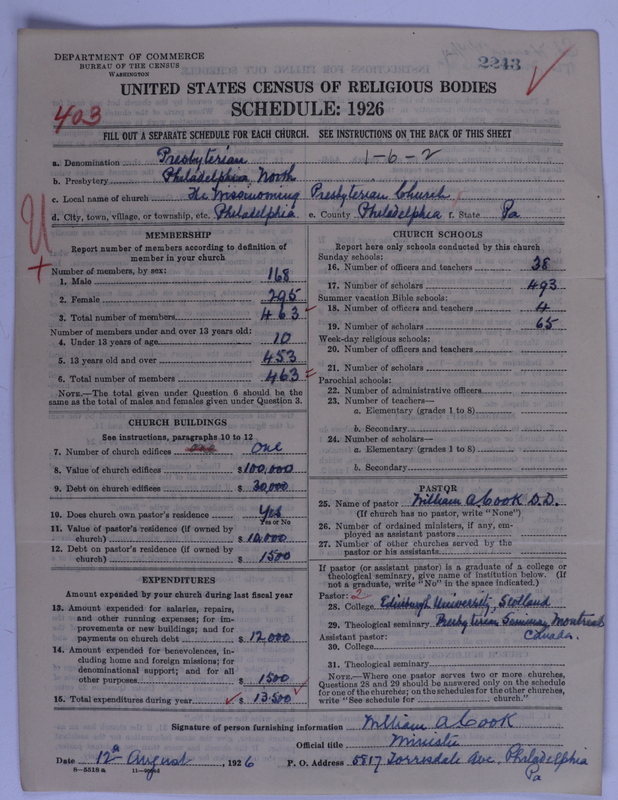 DEPARTMENT OF COMMERCE
BUREAU OF THE CENSUS
WASHINGTON
2243
UNITED STATES CENSUS OF RELIGIOUS BODIES
SCHEDULE: 1926
403
FILL OUT A SEPARATE SCHEDULE FOR EACH CHURCH. SEE INSTRUCTIONS ON THE BACK OF THIS SHEET
a. Denomination Presbyterian 1-6-2
b. Presbytery Philadelphia North
c. Local name of church The Wissinoming Presbyterian Church
d. City, town, village, or township, etc. Philadelphia e. County Philadelphia f. State Pa
MEMBERSHIP
Report number of members according to definition of member in your church
Number of members, by sex:
1. Male 168
2. Female 295
3. Total number of members 463
Number of members under and over 13 years old:
4. Under 13 years of age 10
5. 13 years old and over 453
6. Total number of members 463
NOTE.—The total given under Question 6 should be the same as the total of males and females given under Question 3.
CHURCH BUILDINGS
See instructions, paragraphs 10 to 12
7. Number of church edifices one One
8. Value of church edifices $100,000
9. Debt on church edifices $30,000
10. Does church own pastor's residence Yes
Yes or No
11. Value of pastor's residence (if owned by church) $10,000
12. Debt on pastor's residence (if owned by church) $1500
EXPENDITURES
Amount expended by your church during last fiscal year
13. Amount expended for salaries, repairs, and other running expenses; for improvements or new buildings; and for payments on church debt $12,000
14. Amount expended for benevolences, including home and foreign missions; for denominational support; and for all other purposes 1500
15. Total expenditures during year $13.500
CHURCH SCHOOLS
Report here only schools conducted by this church
Sunday schools:
16. Number of officers and teachers 38
17. Number of scholars 493
Summer vacation Bible schools:
18. Number of officers and teachers 4
19. Number of scholars 65
Week-day religious schools:
20. Number of officers and teachers
21. Number of scholars
Parochial schools:
22. Number of administrative officers
23. Number of teachers—
a. Elementary (grades 1 to 8)
b. Secondary
24. Number of scholars—
a. Elementary (grades 1 to 8)
b. Secondary
PASTOR
25. Name of pastor William A Cook D.D.
(If church has no pastor, write "None")
26. Number of ordained ministers, if any, employed as assistant pastors
27. Number of other churches served by the pastor or his assistants
If pastor (or assistant pastor) is a graduate of a college or theological seminary, give name of institution below. (If not a graduate, write "No" in the space indicated.)
Pastor: 2
28. College Edinburgh University, Scotland
29. Theological seminary Presbyterian Seminary Montreal
Canada.
Assistant pastor:
30. College
31. Theological seminary
NOTE.—Where one pastor serves two or more churches, Questions 28 and 29 should be answered only on the schedule for one of the churches; on the schedules for the other churches, write "See schedule for church."
Signature of person furnishing information William A Cook
Official title Minister
Date 12th August, 1926 P. O. Address 5817 Torresdale Ave. Philadelphia
Pa
8—5518 a